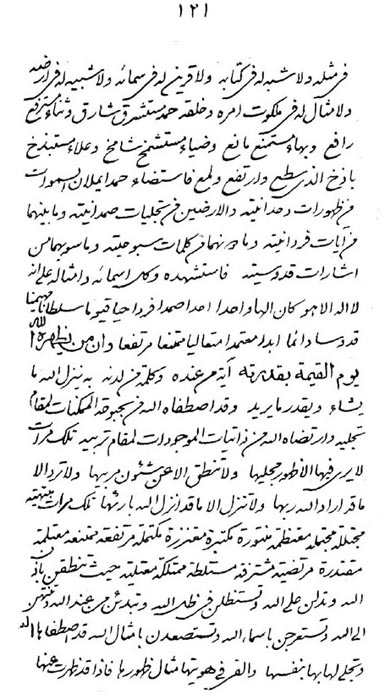 ١٢١
فی مثله ولا شبه له فی کتابه ولا قرین له فی سمائه ولا شبیه له فی ارضه
ولا مثال له فی ملکوت امره و خلقه حمد مستشرق شارق و ثناء مسترفع
رافع و بهاء مستمنع مانع وضیاء مستشمخ شامخ و علاء مستبذخ
باذخ الذی سطع وارتفع ولمع فاستضاء حمدا یملان السموات
من ظهورات وحدانیته والارضین من تجلیات صمدانیته وما بینهما
من آیات فردانیته وما دونهما من کلمات سبوحیته وما سویهما من
اشارات قدوسیته فاستشهده وکل اسمائه وامثاله علی انه
لا اله الا هو کان الها واحدا احدا صمدا فردا حیا قیوما سلطانا مهیمنا
قدوسا دائما ابدا معتمدا متعالیا ممتنعا مرتفعا وان من یظهره الله
یوم القیمة بقدرته آیة من عنده وکلمة من لدنه به ینزل الله ما
یشاء ویقدر ما یرید وقد اصطفاه الله من بحبوحة الممکنات لمقام
تجلیه وارتضاه الله من ذاتیات الموجودات لمقام تربیه تلک مرات
لا یری فیها الا ظهور مجلیها ولا تنطق الا عن شئون مربها ولا ترد الا
ما قد اراد الله ربها ولا تنزل الا ما قد انزل الله بارئها تلک مرات مبتهیه
مجتلله مجتمله مقتظمة متنورة مکتبرة مغتززة مکتمله مرتفعة ممتنعه معتلمة
مقتدرة مرتضیة مشترفه مستلطه ممتلکة معتلیه حیث تنطقن باذن
الله وتدلن علی الله وتستظلن فی ظل الله وتبدئن من عند الله وتنتهن
الی الله وتستعرجن باسماء الله وتستصعدن بامثال الله قد اصطفاها الله
وتجلی لها بها بنفسها والقی فی هویتها مثال ظهورها فاذا قد ظهرت عنها